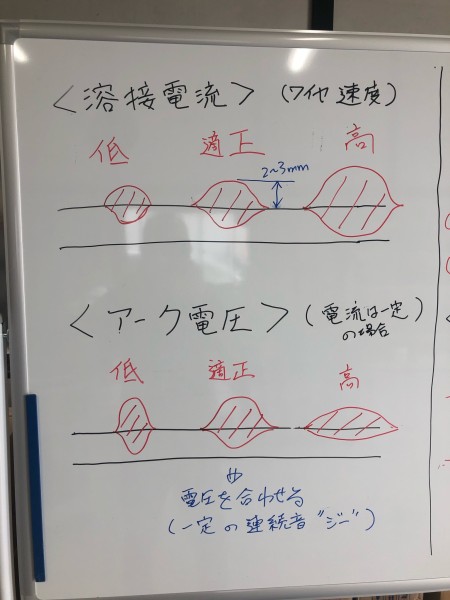 ＜溶接電流＞ (ワイヤ速度)
低 適正 高
2~3mm
＜アーク電圧＞ (電流は一定
の場合)
低 適正 高
電圧を合わせる
(一定の連続音"ジー")